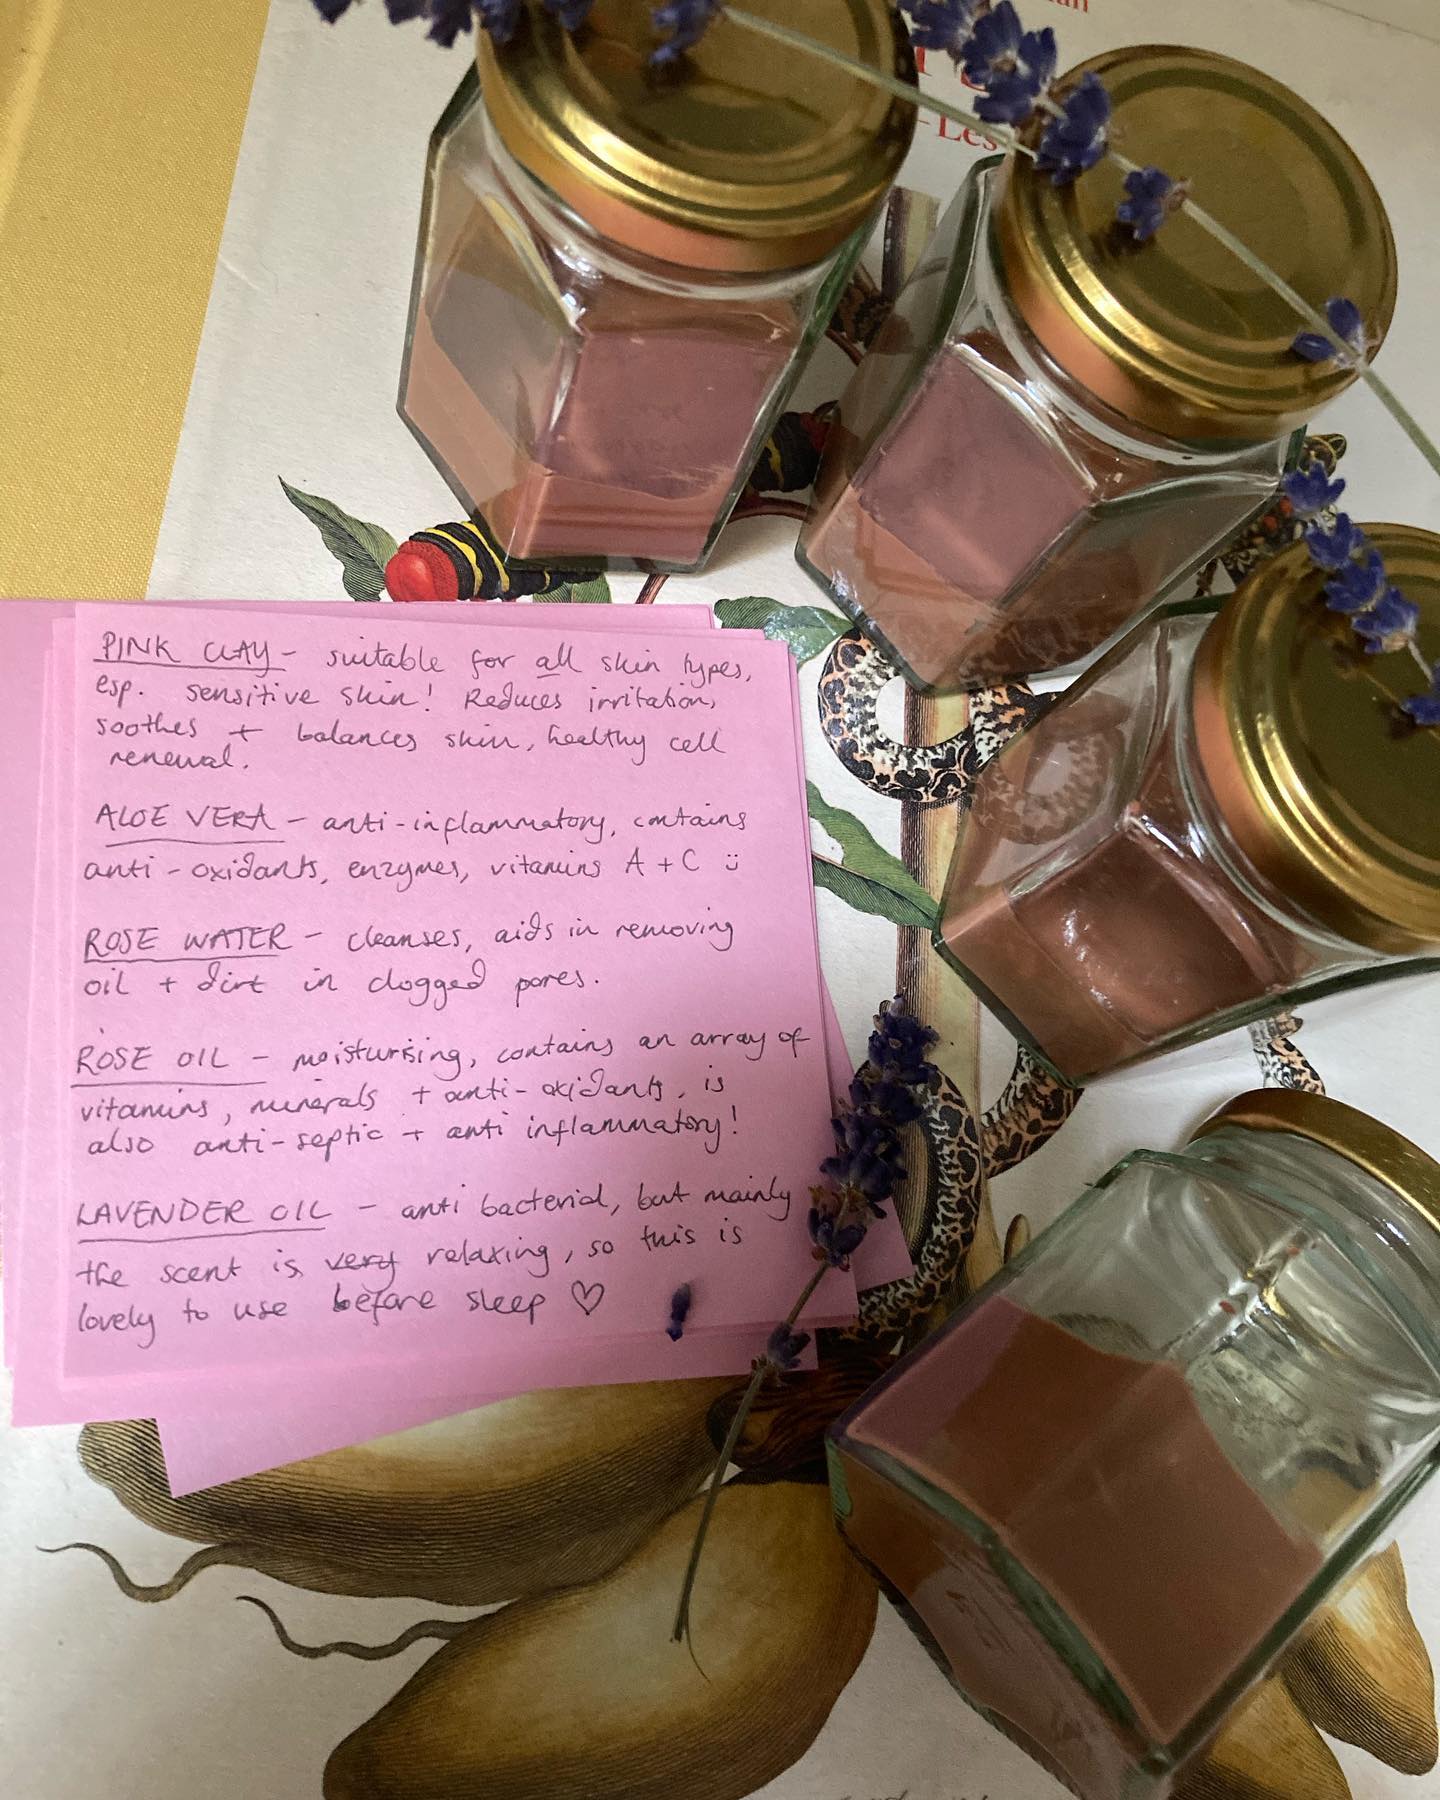 an
Les
PINK CLAY - suitable for all skin types,
esp. sensitive skin! Reduces irritation,
soothes + balances skin, healthy cell
renewal.
ALOE VERA - anti-inflammatory, contains
anti-oxidants, enzymes, vitamins A + C ü
ROSE WATER - cleanses, aids in removing
oil + dirt in clogged pores.
ROSE OIL - moisturising, contains an array of
vitamins, minerals + anti-oxidants, is
also anti-septic + anti inflammatory!
LAVENDER OIL - anti bacterial, but mainly
the scent is very relaxing, so this is
lovely to use before sleep ♡